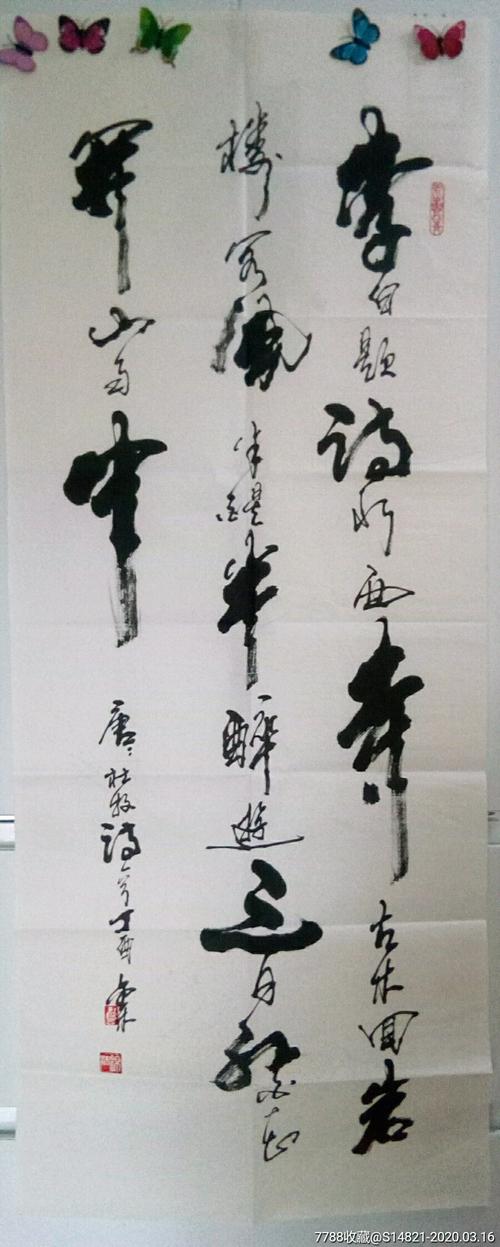 李白題詩水西寺古木回岩
樓閣風半醒半醉遊三日紅白花
開山雨中
唐杜牧詩丁酉
7788收藏@S14821-2020.03.16